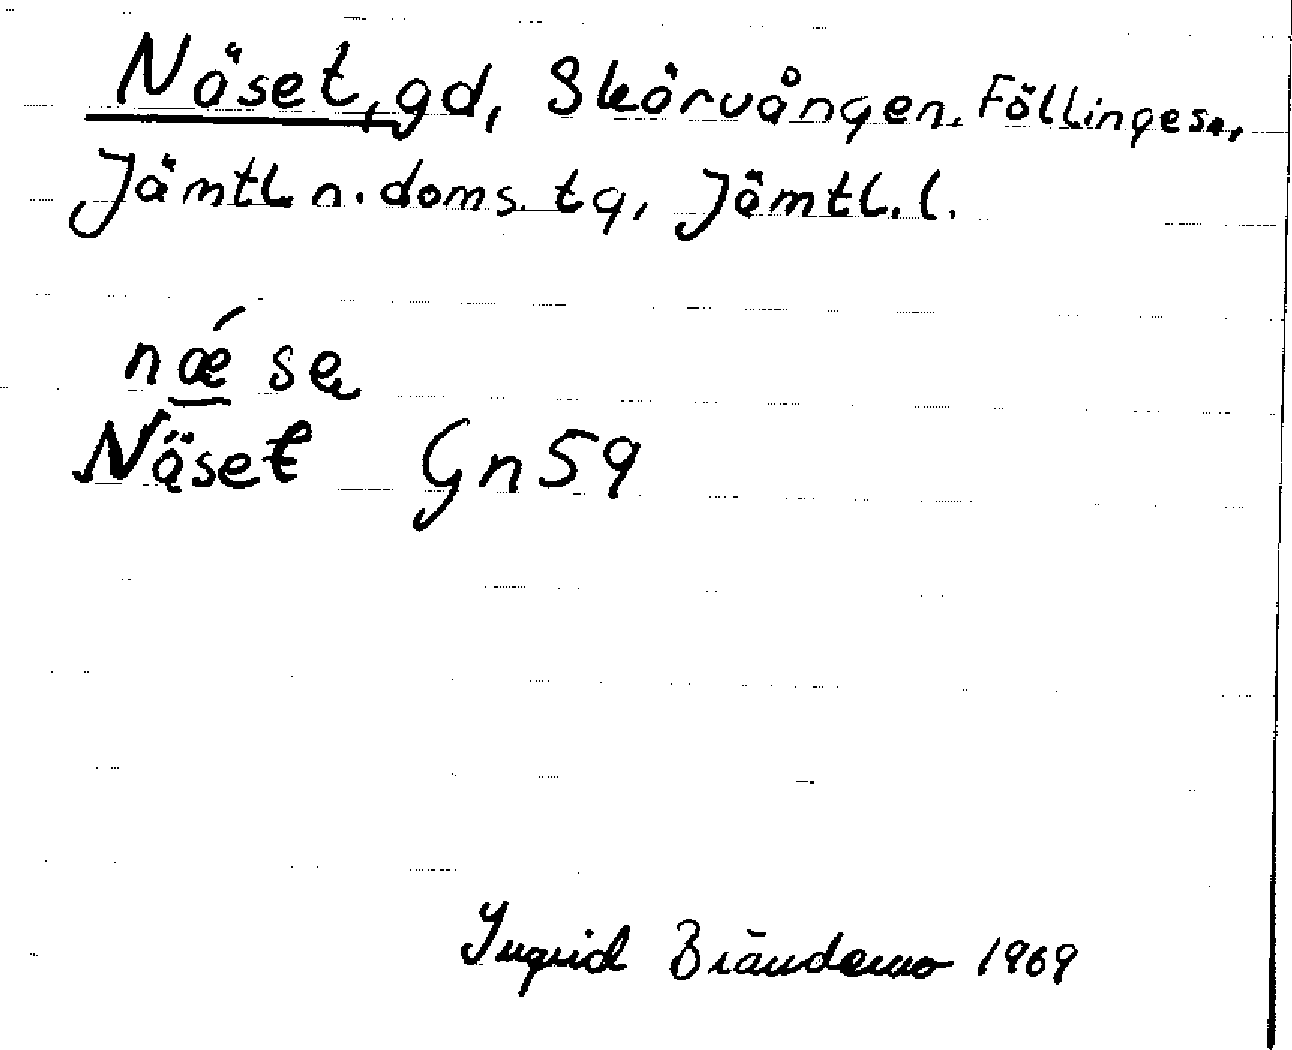 Näset, gd, Skärvången. Föllinge sn,
Jämtl. n. doms. tg, Jämtl. l.
næ´ se
Näset Gn 59
Ingrid Brändemo 1969